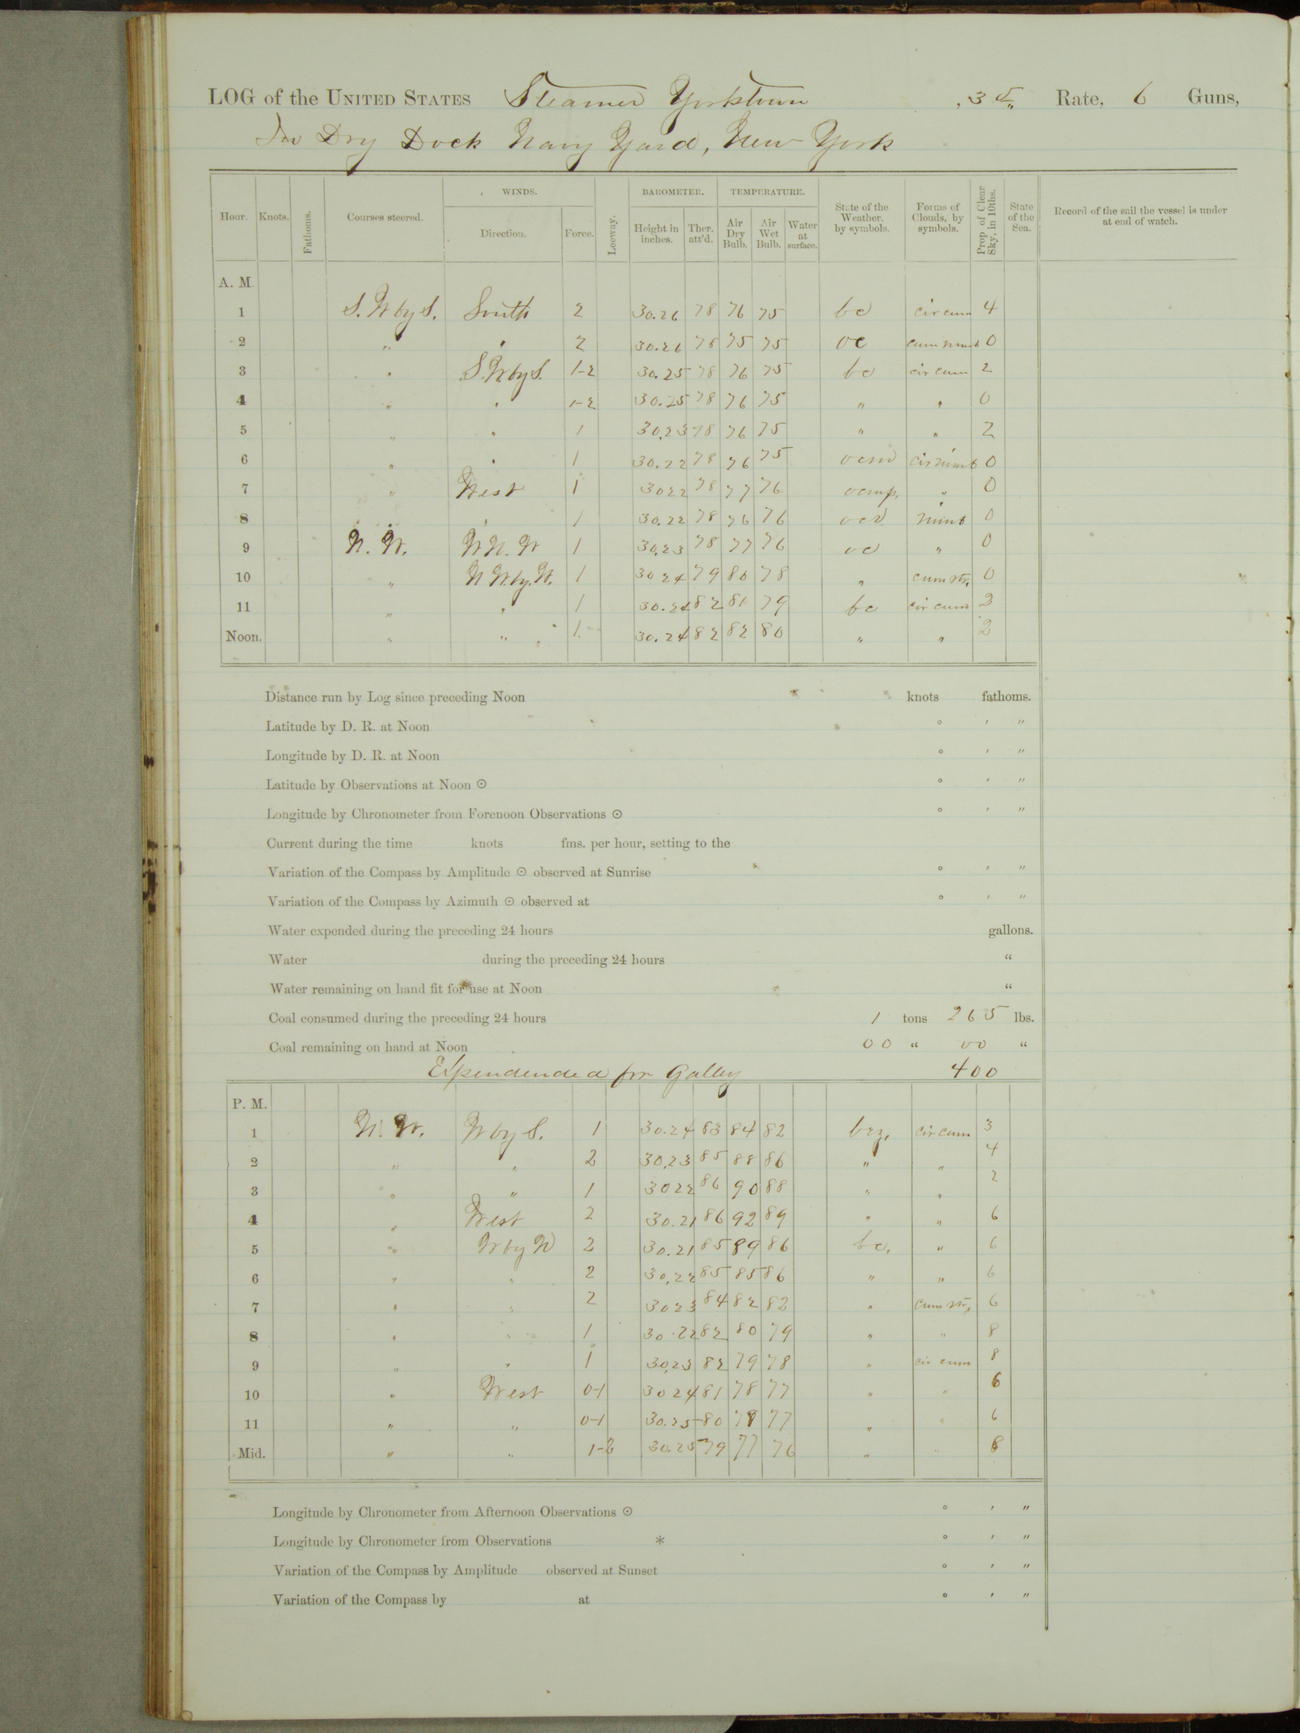 LOG of the UNITED STATES Steamer Yorktown , 3d Rate, 6 Guns,
In Dry Dock Navy Yard, New York
Hour. Knots. Fathoms. Courses steered. WINDS. Direction. Force. Leeway. BAROMETER. Height in inches. Ther. att'd. TEMPERATURE. Air Dry Bulb. Air Wet Bulb. Water at surface. State of the Weather. by symbols. Forms of Clouds, by symbols. Prop of Clear Sky, in 10ths. State of the Sea. Record of the sail the vessel is under at end of watch.
A. M.
1 S. W by S. South 2 30.26 78 76 75 bc cir cum 4
2 " " 2 30.26 78 75 75 oc cum nimb 0
3 " S. W by S. 1-2 30.25 78 76 75 bc cir cum 2
4 " " 1-2 30.25 78 76 75 " " 0
5 " " 1 30.23 78 76 75 " " 2
6 " " 1 30.22 78 76 75 ocm cir nimb 0
7 " West 1 3022 78 77 76 ocmp. " 0
8 " " 1 30.22 78 76 76 nimb 0
9 N. W. W N. W 1 30.23 78 77 76 oc " 0
10 " N W. by. W. 1 30 24 79 80 78 " cum str. 0
11 " " 1 30.24 82 81 79 bc cir cum 3
Noon. " " 1 30.24 82 82 80 " " 2
Distance run by Log since preceding Noon knots fathoms.
Latitude by D. R. at Noon ° ' "
Longitude by D. R. at Noon ° ' "
Latitude by Observations at Noon ⊙ ° ' "
Longitude by Chronometer from Forenoon Observations ⊙ ° ' "
Current during the time knots fms. per hour, setting to the
Variation of the Compass by Amplitude ⊙ observed at Sunrise ° ' "
Variation of the Compass by Azimuth ⊙ observed at ° ' "
Water expended during the preceding 24 hours gallons.
Water during the preceding 24 hours "
Water remaining on hand fit for use at Noon "
Coal consumed during the preceding 24 hours 1 tons 265 lbs.
Coal remaining on hand at Noon 00 " 00 "
Expendended for Galley 400
P. M.
1 N. W. W by S. 1 30.24 83 84 82 bcz. cir cum 3
2 " " 2 30.23 85 88 86 " " 4
3 " " 1 3022 86 90 88 " " 2
4 " West 2 30.21 86 92 89 " " 6
5 " W by N 2 30.21 85 89 86 bc. " 6
6 " " 2 30.22 85 85 86 " " 6
7 " " 2 3023 84 82 82 " cum str. 6
8 " " 1 30.22 82 80 79 " " 8
9 " " 1 30.23 82 79 78 " cir cum 8
10 " West 0-1 30 24 81 78 77 " " 6
11 " " 0-1 30.25 80 78 77 " " 6
Mid. " " 1-2 30.25 79 77 76 " " 8
Longitude by Chronometer from Afternoon Observations ⊙ ° ' "
Longitude by Chronometer from Observations * ° ' "
Variation of the Compass by Amplitude observed at Sunset ° ' "
Variation of the Compass by at ° ' "